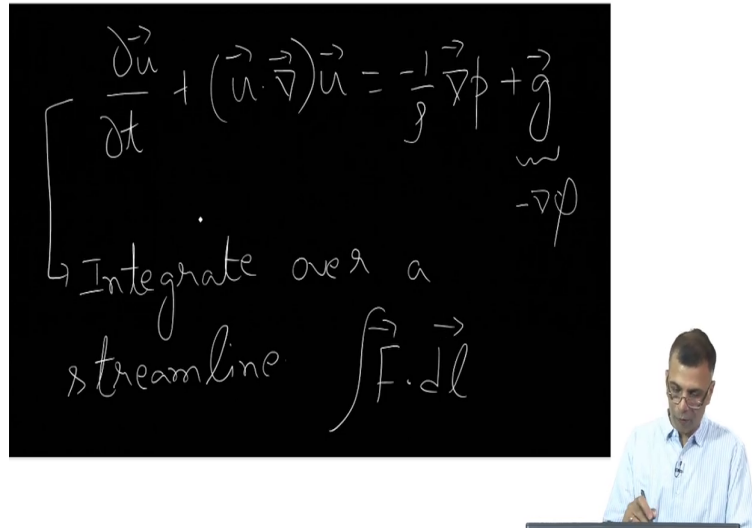 ∂u⃗/∂t + (u⃗·∇⃗)u⃗ = -1/ρ ∇⃗p + g⃗
-∇φ
Integrate over a
streamline ∫F⃗·dl⃗